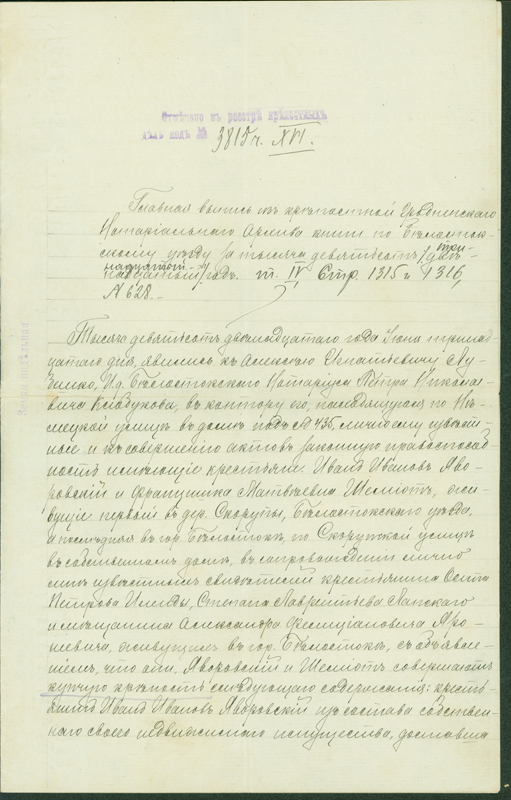 Отмѣчено въ реестрѣ крѣпостныхъ
дѣлъ подъ № 3815 ч. XVI.
Главная выпись изъ крѣпостной Гродненскаго
Нотаріальнаго Архива книги по Бѣлосток-
скому уѣзду за тысяча девятьсотъ
три-
надцатый годъ. т. IV Стр. 1315 и 1316,
№ 628.
Тысяча девятьсотъ двѣнадцатаго года Іюня тринад-
цатаго дня, явились къ Алексѣю Игнатьевичу Лу-
зенко, И.д. Бѣлостокскаго Нотаріуса Петра Никола-
евича въ контору его, находящуюся по Нѣ-
мецкой улицѣ въ домѣ подъ № 435, лично ему извѣст-
ные и къ совершенію актовъ законную правоспособ-
ность имѣющіе крестьяне Иванъ Ивановъ Яво-
ровскій и Францишка Матвѣевна Шеміотъ, жи-
вущіе первый въ дер. Скорупы, Бѣлостокскаго уѣзда,
а послѣдняя въ гор. Бѣлостокѣ, по Скорупской улицѣ
въ собственномъ домѣ, въ сопровожденіи лично
мнѣ извѣстныхъ свидѣтелей крестьянина
Петрова Степана Лаврентьева Лапскаго
и мѣщанина Александра Фелиціановича Яро-
невича, живущихъ въ гор. Бѣлостокѣ, съ объявле-
ніемъ, что они, Яворовскій и Шеміотъ совершаютъ
купчую крѣпость слѣдующаго содержанія: кресть-
янинъ Иванъ Ивановъ Яворовскій изъ состава собствен-
наго своего недвижимаго имущества, доставша